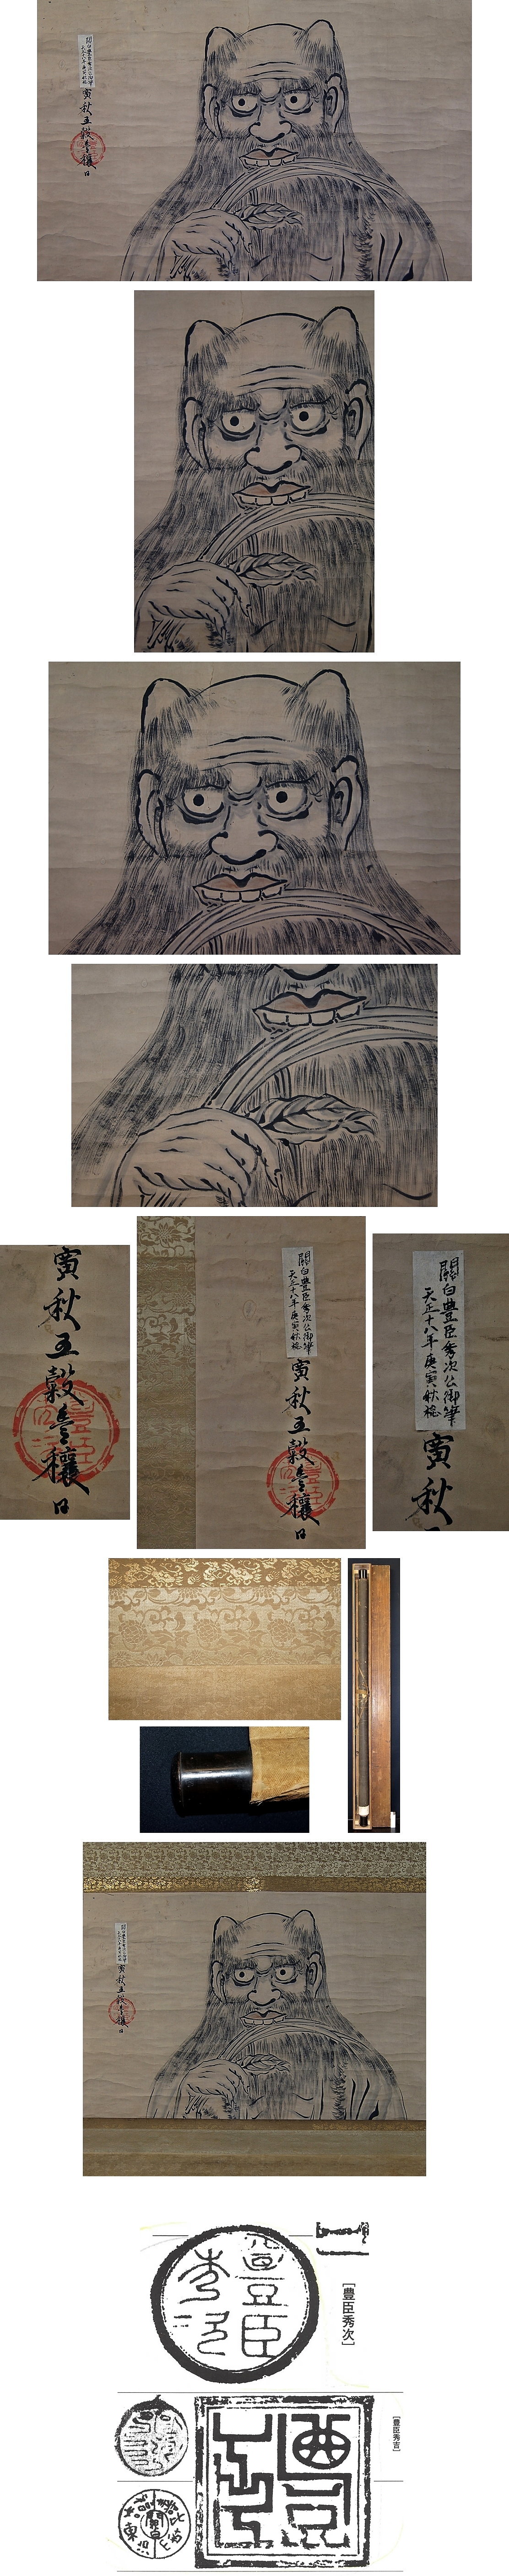 關白豊臣秀次公御筆
天正十八年庚寅秋穐
寅秋五穀豊穣日
寅秋五穀豊穣日
關白豊臣秀次公御筆
天正十八年庚寅秋穐
寅秋五穀豊穣日
關白豊臣秀次公御筆
天正十八年庚寅秋穐
寅秋
寅秋五穀豊穣日
豊臣
秀次
[豊臣秀次]
[豊臣秀吉]